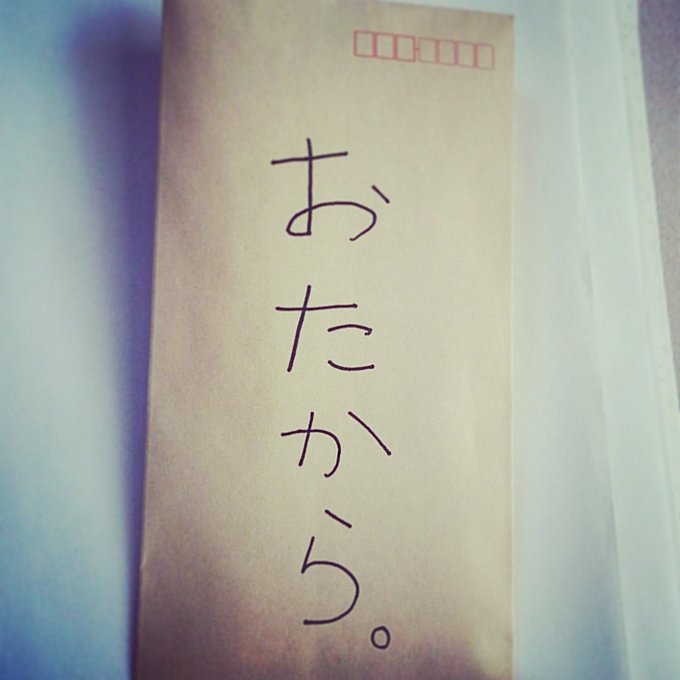 おたから。